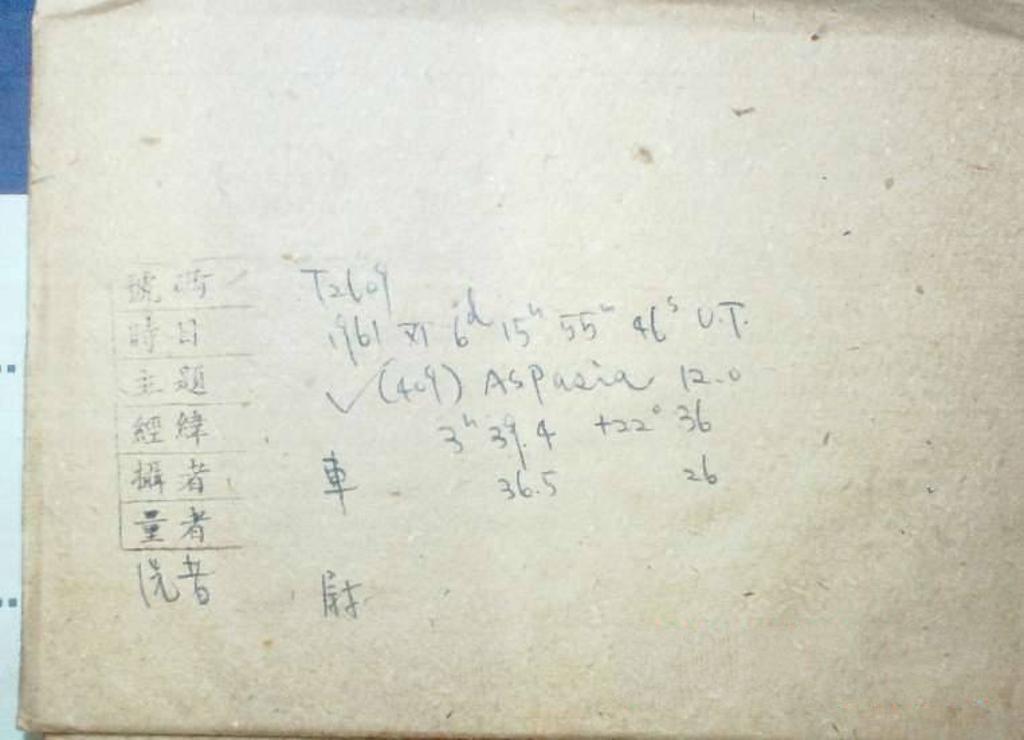 號 T2609
時日 1961 XI 6d 15h 55m 46s U.T.
主題 ✓(409) Aspasia 12.0
經緯 3h 39.4 +22° 36
攝者 車 36.5 26
量者
洗者 尉